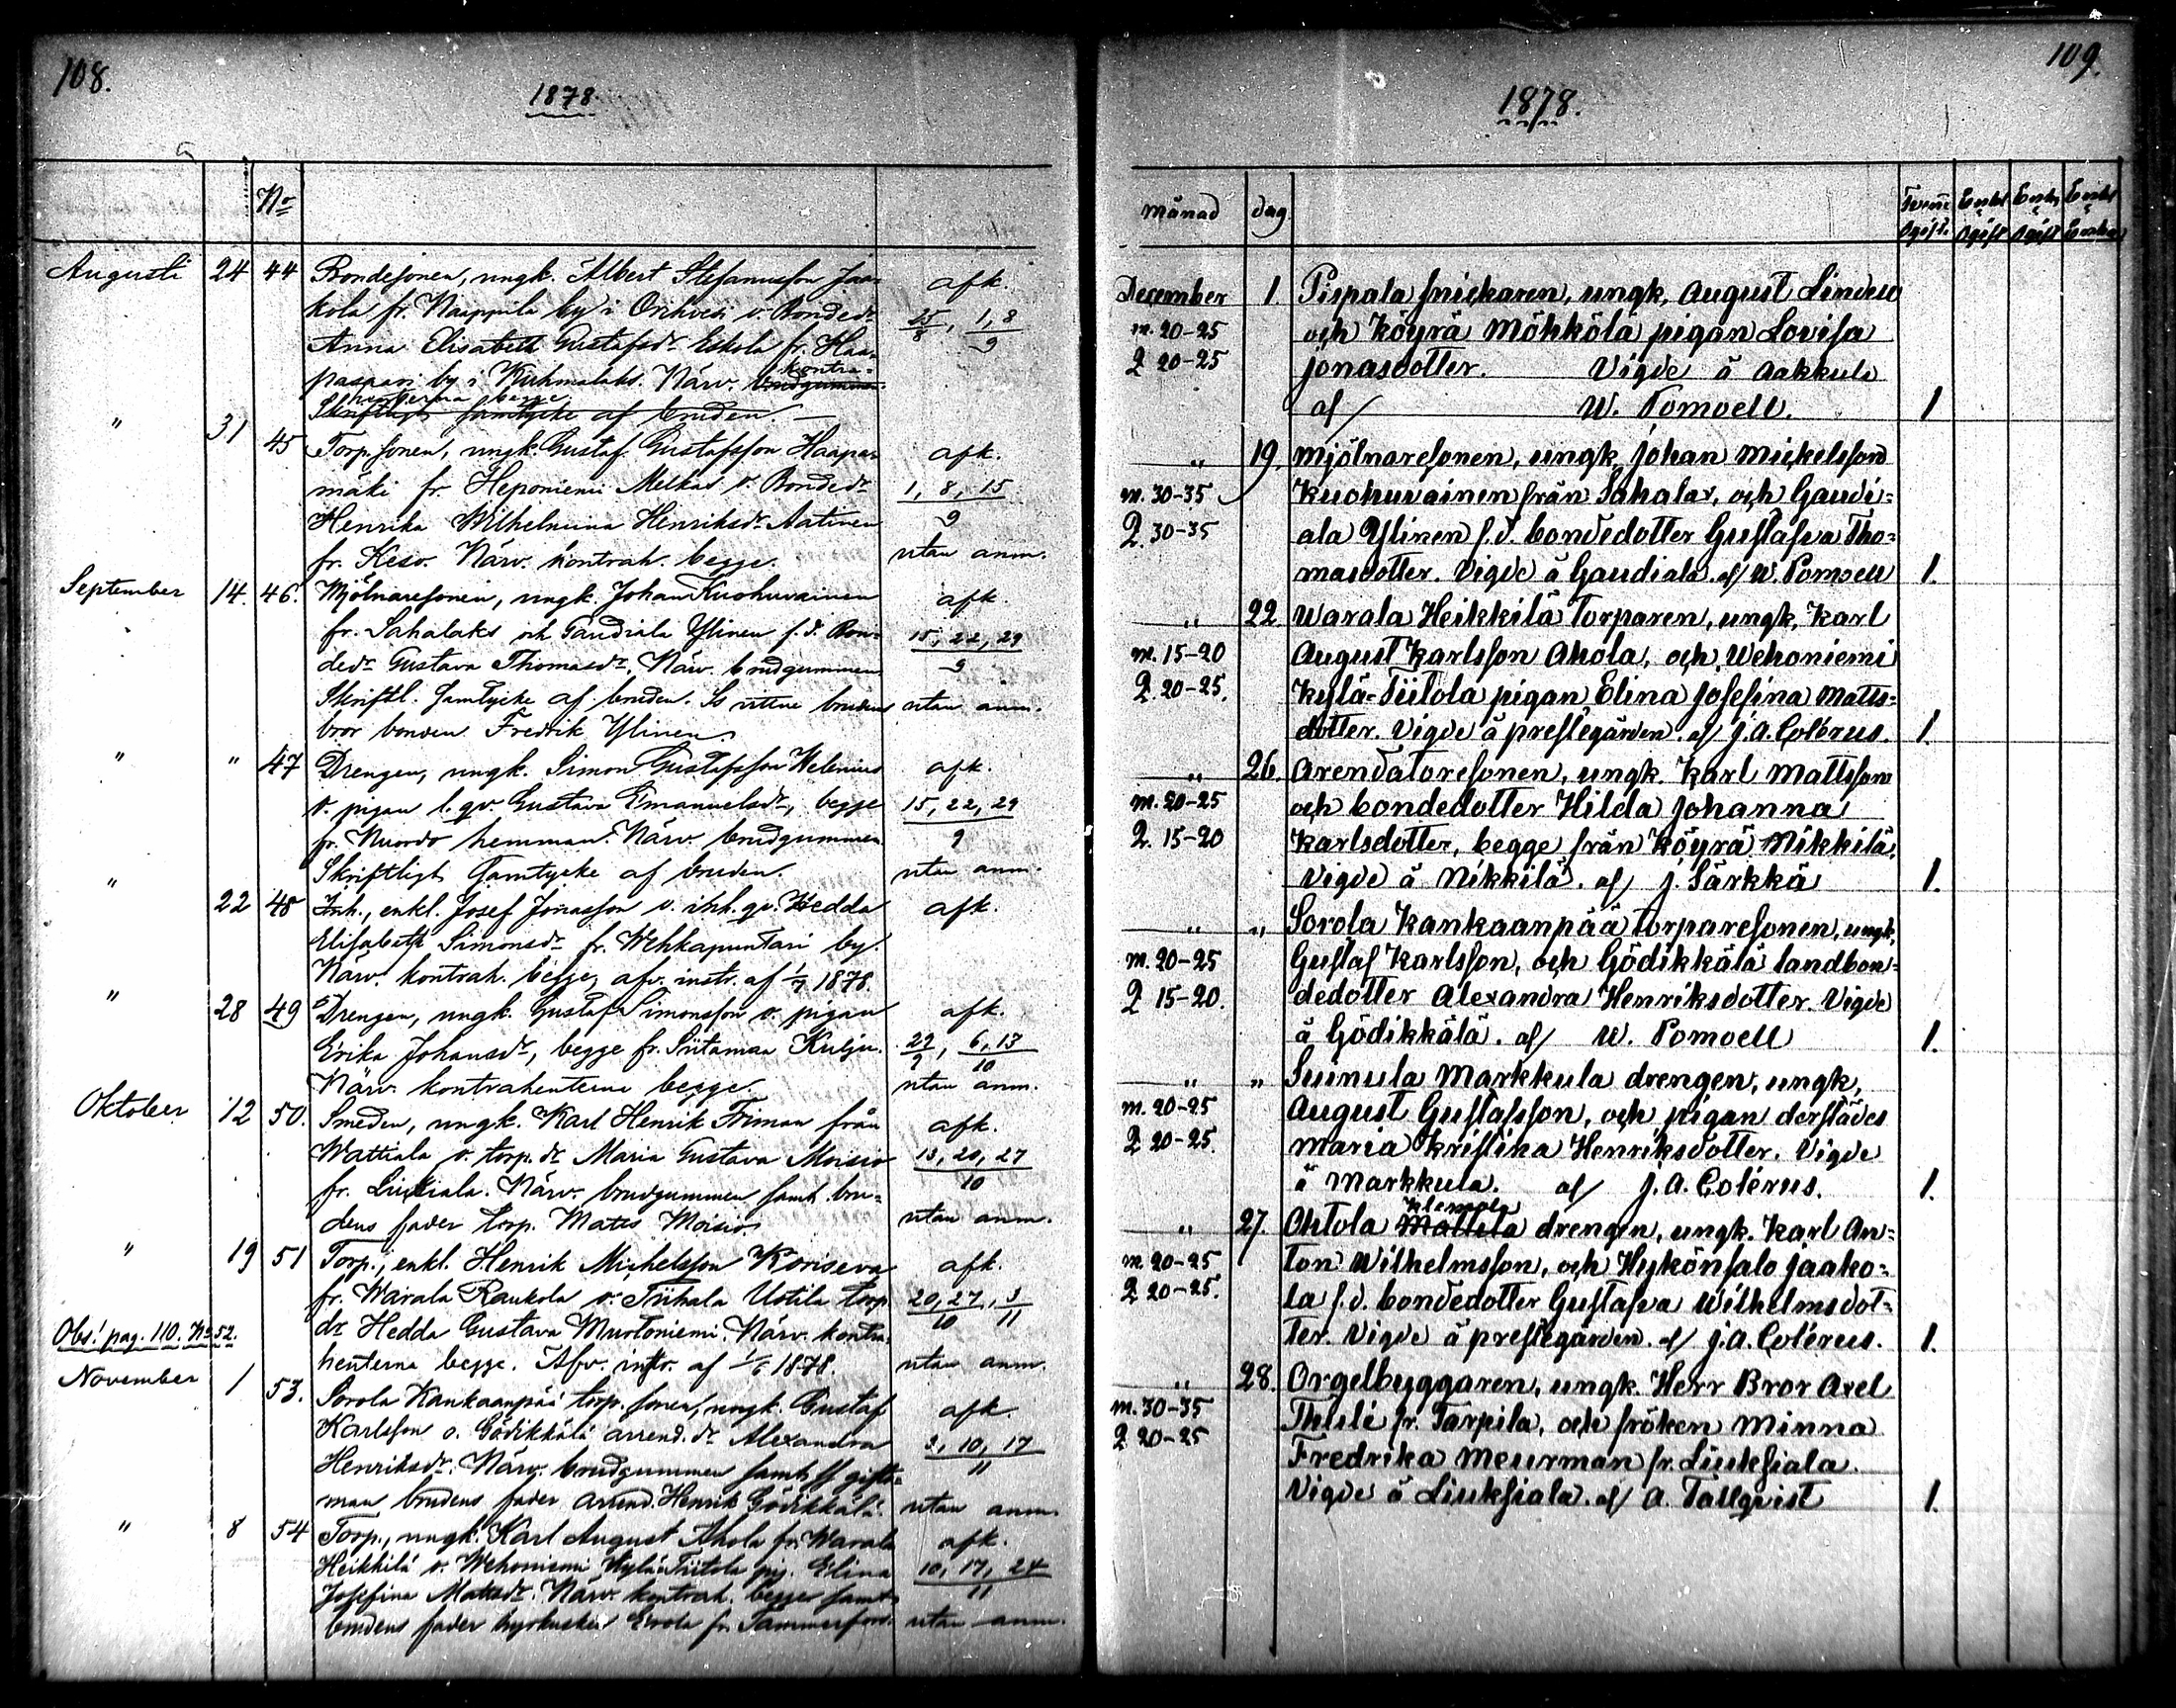 108.
1878.
No
Augusti 24 44 Bondesonen, ungk. Albert Stefanusson Jaa- afk.
kola fr. Naappila by i Orihvesi o. Bondedr 25/8, 1, 8/9
Anna Elisabeth Gustafsdr Eskola fr. Haa-
pasaari by i Kuhmalaks. Närv. kontra-
henterna begge
Skriftligt samtycke af bruden.
" 31 45 Torp.sonen, ungk. Gustaf Gustafsson Haapa- afk.
mäki fr. Heponiemi Melkas o. Bondedr 1, 8, 15/9
Henrika Wilhelmina Henriksdr Aatinen
fr. Keso. Närv. kontrah. begge. utan anm.
September 14. 46. Mjölnaresonen, ungk. Johan Kuohuvainen afk.
fr. Sahalaks och Gaudiala Ylinen f. d. Bon- 15, 22, 29/9
dedr Gustava Thomasdr. Närv. brudgummen
Skriftl. samtycke af bruden. Ss vittne brudens utan anm.
bror bonden Fredrik Ylinen.
" " 47 Drengen, ungk. Simon Gustafsson Welenius afk.
o. pigan l. qv. Gustava Emanuelsdr, begge 15, 22, 29/9
fr. Nuordo hemman. Närv. brudgummen
Skriftligt samtycke af bruden. utan anm.
" 22 48 Inh., enkl. Josef Jonasson o. inh. qv. Hedda afk.
Elisabeth Simonsdr fr. Wehkapuntari by.
Närv. kontrah. begge, afv. instr. af 1/7 1878.
" 28 49 Drengen, ungk. Gustaf Simonsson o. pigan afk.
Erika Johansdr, begge fr. Siitamaa Kulju. 22/9, 6, 13/10
Närv. kontrahenterna begge. utan anm.
Oktober 12 50. Smeden, ungk. Karl Henrik Friman från afk.
Wattiala o. torp. dr Maria Gustava Moisio 13, 20, 27/10
fr. Liuksiala. Närv. brudgummen samt bru-
dens fader torp. Matts Moisio. utan anm.
" 19 51 Torp., enkl. Henrik Michelsson Koriseva afk.
fr. Warala Raukola o. Tiihala Uotila torp 20, 27/10, 3/11
Obs! pag. 110. No 52. dr Hedda Gustava Murtoniemi. Närv. kontra-
henterna begge. Afv. instr. af 1/6 1878. utan anm.
November 1 53. Sorola Kankaanpää torp. sonen, ungk. Gustaf afk.
Karlsson o. Gödikkälä arrend. dr Alexandra 3, 10, 17/11
Henriksdr. Närv. brudgummen samt ss gifto-
man brudens fader arrend. Henrik Gödikkälä. utan anm.
" 8 54 Torp., ungk. Karl August Ahola fr. Warala afk.
Heikkilä o. Wehoniemi Kylä-Tiitola pig. Elina 10, 17, 24/11
Josefina Mattsdr. Närv. kontrah. begge samt
brudens fader hyrkusken Erola fr. Tammerfors. utan anm.
109.
1878.
Månad dag.
December 1. Pispala snickaren, ungk, August Lindell
m. 20-25 och Köyrä Möhkölä pigan Lovisa
Q 20-25 Jonasdotter. Vigde å Aakkula
af W. Pomoell. 1
" 19. Mjölnaresonen, ungk Johan Mickelsson
m. 30-35 Kuohuvainen från Sahalax, och Gaudi-
Q. 30-35 ala Ylinen f. d. bondedotter Gustafva Tho-
masdotter. Vigde å Gaudiala. af W. Pomoell 1.
" 22 Warala Heikkilä Torparen, ungk, Karl
m. 15-20 August Karlsson Ahola, och Wehoniemi
Q. 20-25. Kylä-Tiitola pigan Elina Josefina Matts-
dotter. Vigde å prestegården. af J. A. Colérus. 1.
" 26. Arendatoresonen, ungk. Karl Mattsson
m. 20-25 och bondedotter Hilda Johanna
Q. 15-20 Karlsdotter, begge från Köyrä Nikkilä.
Vigde å Nikkilä. af J. Särkkä 1.
" " Sorola Kankaanpää torparesonen, ungk,
m. 20-25 Gustaf Karlsson, och Gödikkälä landbon-
Q 15-20. dedotter Alexandra Henriksdotter. Vigde
å Gödikkälä. af W. Pomoell 1.
" " Suinula Markkula drengen, ungk,
m. 20-25 August Gustafsson, och pigan derstädes
Q 20-25. Maria Kristina Henriksdotter. Vigde
å Markkula. af J. A. Colérus. 1.
Klemola
" 27. Ohtola Mattila drengen, ungk. Karl An-
m. 20-25 ton Wilhelmsson, och Hykönsalo Jaako-
Q 20-25. la f. d. bondedotter Gustafva Wilhelmsdot-
ter. Vigde å prestegården. af J. A. Colérus. 1.
" 28. Orgelbyggaren, ungk. Herr Bror Axel
m. 30-35 Thulé fr. Tarpila, och fröken Minna
Q 20-25 Fredrika Meurman fr. Liuksiala.
Vigde å Liuksiala. af A. Tallqvist 1.